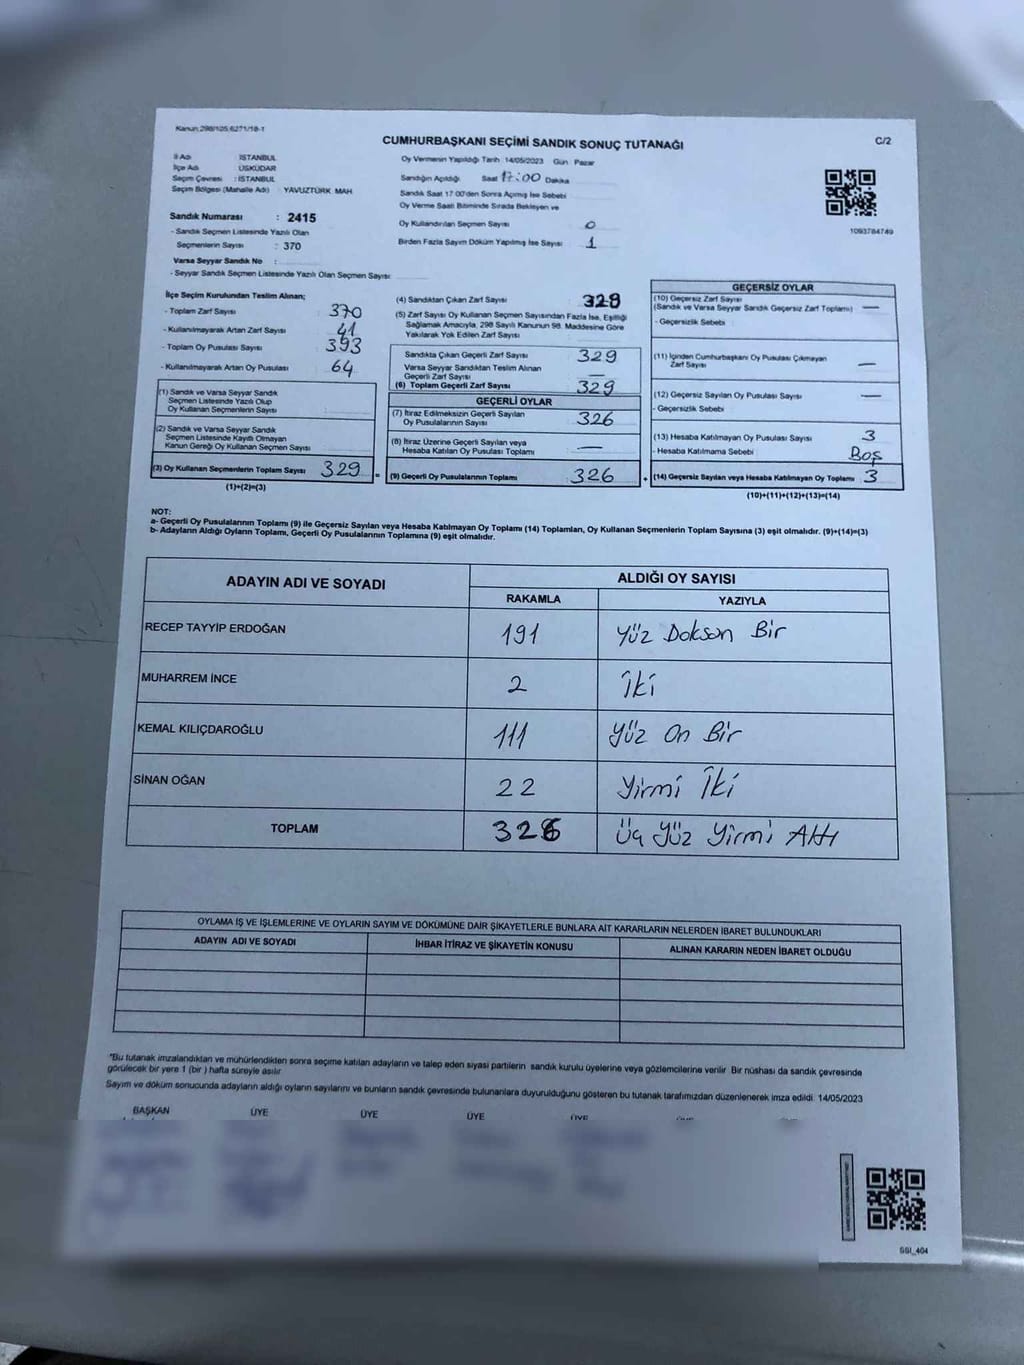 Kanun:298/105,6271/18-1
CUMHURBAŞKANI SEÇİMİ SANDIK SONUÇ TUTANAĞI
C/2
İl Adı : İSTANBUL
İlçe Adı : ÜSKÜDAR
Seçim Çevresi : İSTANBUL
Seçim Bölgesi (Mahalle Adı) : YAVUZTÜRK MAH.
Sandık Numarası : 2415
- Sandık Seçmen Listesinde Yazılı Olan
Seçmenlerin Sayısı : 370
Varsa Seyyar Sandık No :
- Seyyar Sandık Seçmen Listesinde Yazılı Olan Seçmen Sayısı :
Oy Vermenin Yapıldığı Tarih : 14/05/2023 Gün : Pazar
Sandığın Açıldığı Saat 17:00 Dakika
Sandık Saat 17.00'den Sonra Açılmış İse Sebebi
Oy Verme Saati Bitiminde Sırada Bekleyen ve
Oy Kullandırılan Seçmen Sayısı : 0
Birden Fazla Sayım Döküm Yapılmış İse Sayısı : 1
1093784749
İlçe Seçim Kurulundan Teslim Alınan;
- Toplam Zarf Sayısı : 370
- Kullanılmayarak Artan Zarf Sayısı : 41
- Toplam Oy Pusulası Sayısı : 393
- Kullanılmayarak Artan Oy Pusulası : 64
(1) Sandık ve Varsa Seyyar Sandık
Seçmen Listesinde Yazılı Olup
Oy Kullanan Seçmenlerin Sayısı :
(2) Sandık ve Varsa Seyyar Sandık
Seçmen Listesinde Kayıtlı Olmayan
Kanun Gereği Oy Kullanan Seçmen Sayısı :
(3) Oy Kullanan Seçmenlerin Toplam Sayısı : 329
(1)+(2)=(3)
(4) Sandıktan Çıkan Zarf Sayısı :
(5) Zarf Sayısı Oy Kullanan Seçmen Sayısından Fazla İse, Eşitliği
Sağlamak Amacıyla, 298 Sayılı Kanunun 98. Maddesine Göre
Yakılarak Yok Edilen Zarf Sayısı :
Sandıkta Çıkan Geçerli Zarf Sayısı : 329
Varsa Seyyar Sandıktan Teslim Alınan
Geçerli Zarf Sayısı : —
(6) Toplam Geçerli Zarf Sayısı : 329
GEÇERLİ OYLAR
(7) İtiraz Edilmeksizin Geçerli Sayılan
Oy Pusulalarının Sayısı : 326
(8) İtiraz Üzerine Geçerli Sayılan veya
Hesaba Katılan Oy Pusulası Toplamı : —
= (9) Geçerli Oy Pusulalarının Toplamı : 326
GEÇERSİZ OYLAR
(10) Geçersiz Zarf Sayısı
(Sandık ve Varsa Seyyar Sandık Geçersiz Zarf Toplamı) : —
- Geçersizlik Sebebi :
(11) İçinden Cumhurbaşkanı Oy Pusulası Çıkmayan
Zarf Sayısı : —
(12) Geçersiz Sayılan Oy Pusulası Sayısı : —
- Geçersizlik Sebebi :
(13) Hesaba Katılmayan Oy Pusulası Sayısı : 3
- Hesaba Katılmama Sebebi : Boş
+ (14) Geçersiz Sayılan veya Hesaba Katılmayan Oy Toplamı : 3
(10)+(11)+(12)+(13)=(14)
NOT:
a- Geçerli Oy Pusulalarının Toplamı (9) ile Geçersiz Sayılan veya Hesaba Katılmayan Oy Toplamı (14) Toplamları, Oy Kullanan Seçmenlerin Toplam Sayısına (3) eşit olmalıdır. (9)+(14)=(3)
b- Adayların Aldığı Oyların Toplamı, Geçerli Oy Pusulalarının Toplamına (9) eşit olmalıdır.
ADAYIN ADI VE SOYADI
ALDIĞI OY SAYISI
RAKAMLA YAZIYLA
RECEP TAYYİP ERDOĞAN 191 Yüz Doksan Bir
MUHARREM İNCE 2 İki
KEMAL KILIÇDAROĞLU 111 Yüz On Bir
SİNAN OĞAN 22 Yirmi İki
TOPLAM 326 Üç Yüz Yirmi Altı
OYLAMA İŞ VE İŞLEMLERİNE VE OYLARIN SAYIM VE DÖKÜMÜNE DAİR ŞİKAYETLERLE BUNLARA AİT KARARLARIN NELERDEN İBARET BULUNDUKLARI
ADAYIN ADI VE SOYADI İHBAR İTİRAZ VE ŞİKAYETİN KONUSU ALINAN KARARIN NEDEN İBARET OLDUĞU
*Bu tutanak imzalandıktan ve mühürlendikten sonra seçime katılan adayların ve talep eden siyasi partilerin sandık kurulu üyelerine veya gözlemcilerine verilir. Bir nüshası da sandık çevresinde
görülecek bir yere 1 (bir ) hafta süreyle asılır.
Sayım ve döküm sonucunda adayların aldığı oyların sayılarını ve bunların sandık çevresinde bulunanlara duyurulduğunu gösteren bu tutanak tarafımızdan düzenlenerek imza edildi. 14/05/2023
BAŞKAN ÜYE ÜYE ÜYE ÜYE
SSI_404